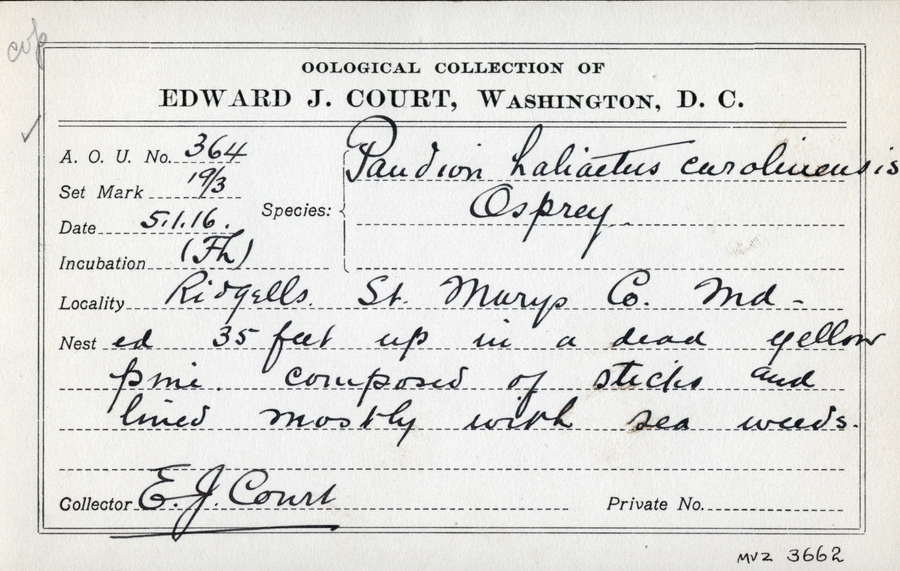 OOLOGICAL COLLECTION OF
EDWARD J. COURT, WASHINGTON, D. C.
A. O. U. No. 364
Set Mark 19/3
Date 5.1.16.
Incubation (Fh)
Species: Pandion haliaetus carolinensis
Osprey
Locality Ridgells. St. Marys Co. Md -
Nest ed 35 feet up in a dead yellow
pine. composed of sticks and
lined mostly with sea weeds.
Collector E. J. Court
Private No.
MVZ 3662